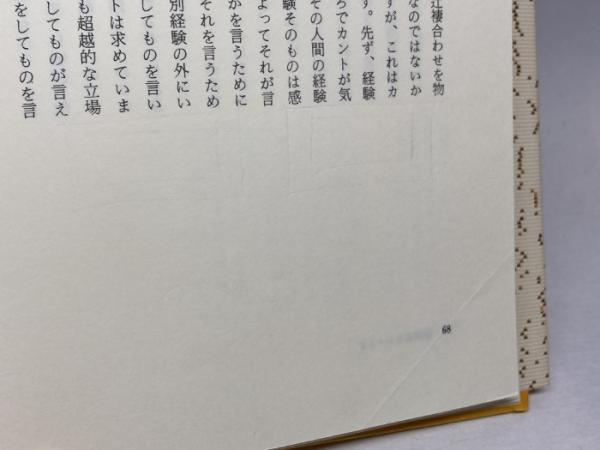 辻褄合わせを物
なのではないか
すが、これはカ
す。先ず、経験
ろでカントが気
その人間の経験
験そのものは感
よってそれが言
かを言うために
それを言うため
別経験の外にい
してものを言い
トは求めていま
も超越的な立場
してものが言え
をしてものを言
68